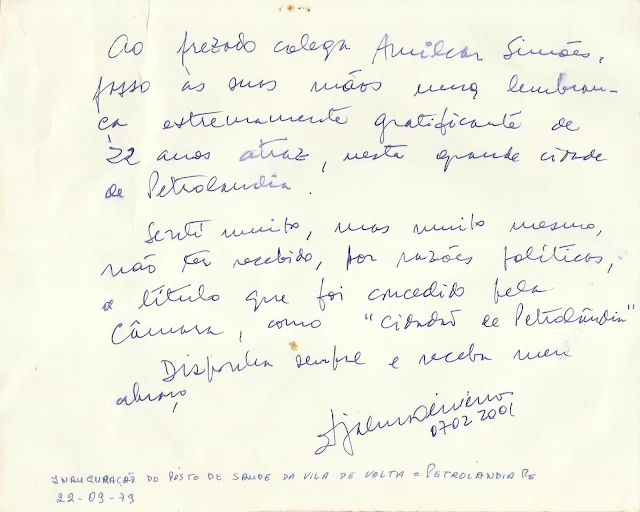 Ao prezado colega Amilcar Simões,
passo às suas mãos uma lembran-
ça extremamente gratificante de
22 anos atraz, nesta grande cidade
de Petrolandia.
Senti muito, mas muito mesmo,
não ter recebido, por razões políticas,
o título que foi concedido pela
Câmara, como "cidadão de Petrolândia"
Disponha sempre e receba meu
abraço
Djalma
07.02 2001
INAUGURAÇÃO DO POSTO DE SAUDE DA VILA DE VOLTA = PETROLANDIA PE
22-09-79